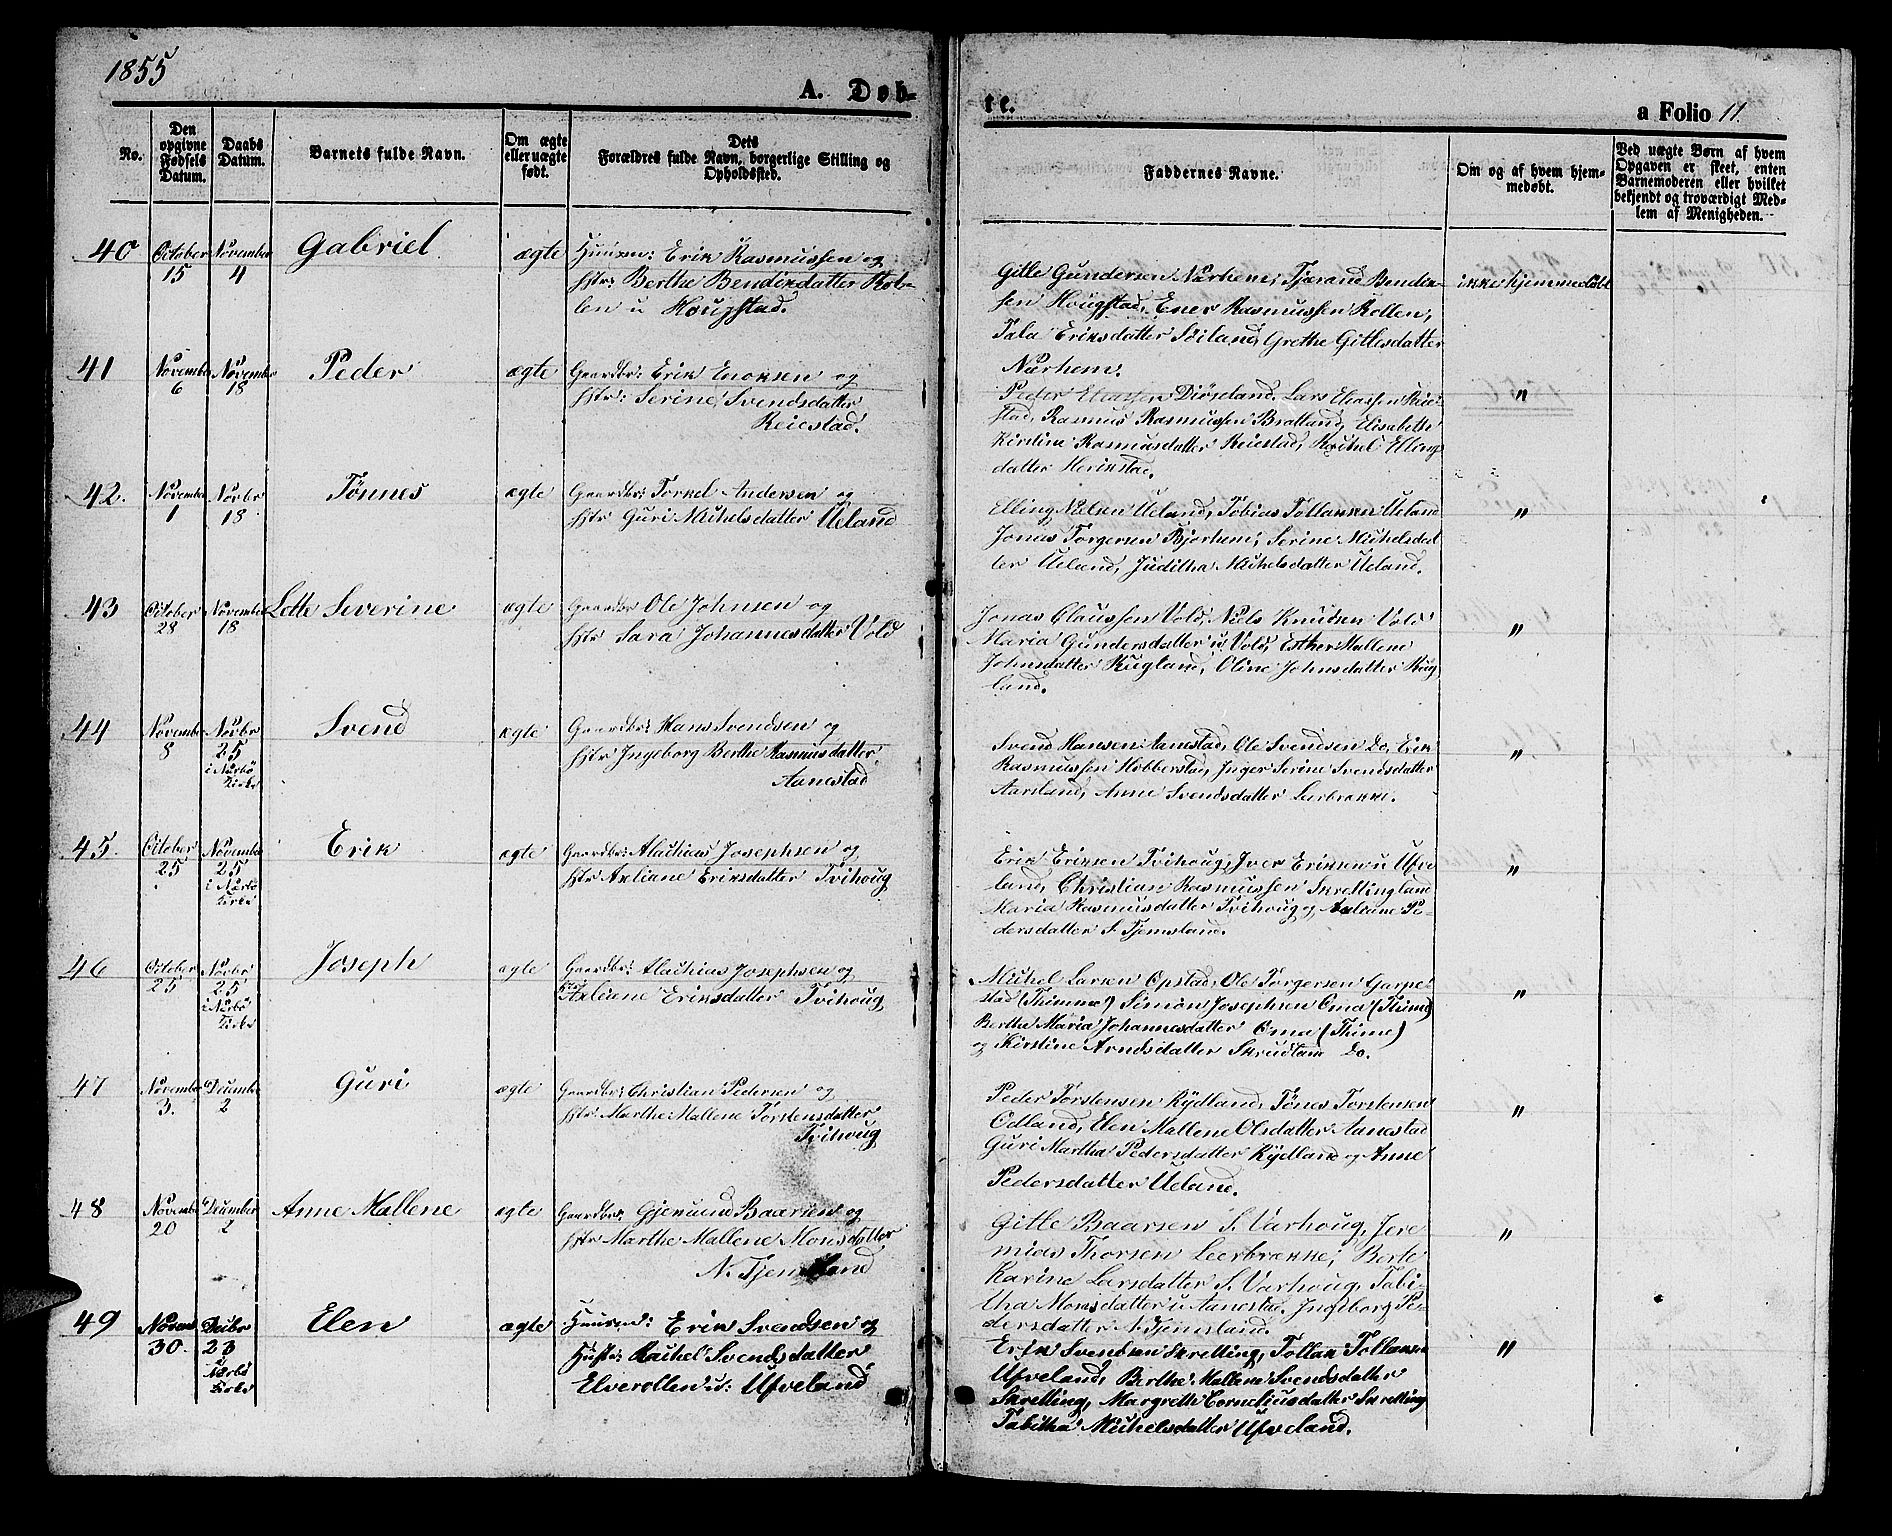 1855
A. Døb-
te.
a Folio 11.
No.
Den opgivne Fødsels Datum.
Daabs Datum.
Barnets fulde Navn.
Om ægte eller uægte født.
Dets Forældres fulde Navn, borgerlige Stilling og Opholdssted.
Faddernes Navne.
Om og af hvem hjemmedøbt.
Ved uægte Børn af hvem Opgaven er skeet, enten Barnemoderen eller hvilket bekjendt og troværdigt Medlem af Menigheden.
40 October 15 November 4 Gabriel ægte Huusm: Erik Rasmussen og
Hstr: Berthe Bendixdatter Kol-
len u Hougstad.
Gitle Gundersen Nærhem, Tjærand Bendix-
sen Hougstad, Ener Rasmussen Kollen,
Tala Eriksdatter Søiland, Grethe Gitlesdatter
Nærhem.
ikke hjemmedøbt
41 November 6 November 18 Peder ægte Gaardbr: Erik Enoksen og
Hstr: Serine Svendsdatter
Reiestad.
Peder Eliassen Diøseland, Lars Eliassen Reie-
stad, Rasmus Rasmussen Bratland, Elisabeth
Kirstine Rasmusdatter Reiestad, Rachel Ellings
datter Herikstad.
"
42. November 1 Novbr 18 Tønnes ægte Gaardbr: Torkel Andersen og
Hstr Guri Michelsdatter Ueland
Elling Nilsen Ueland, Tobias Tollaksen Ueland
Jonas Torgersen Bjorhem, Serine Michelsdat
ter Ueland, Juditha Michelsdatter Ueland.
"
43 October 28 November 18 Lotte Severine ægte Gaardbr Ole Johnsen og
Hstr Sara Johannesdatter Vold
Jonas Claussen Vold, Niels Knutsen Vold
Maria Gundersdatter u Vold, Esther Mallene
Johnsdatter Kugland, Oline Johnsdatter Kug
land.
"
44 November 8 Novbr 25 i Nærbö Kirke Svend ægte Gaardbr: Hans Svendsen og
Hstr Ingeborg Berthe Rasmusdatter
Aanestad
Svend Hansen Aanestad, Ole Svendsen Do, Erik
Rasmussen Hobberstad, Inger Serine Svendsdatter
Aarsland, Anne Svendsdatter Leerbrekke.
"
45. October 25 November 25 i Nærbö Kirke Erik ægte Gaardbr: Mathias Josephsen og
Hstr Axliane Eriksdatter Tvihoug
Erik Eriksen Tvihoug, Iver Eriksen u Ufve-
land, Christian Rasmussen Skrettingland
Maria Rasmusdatter Tvihoug og Axliane Pe-
dersdatter S. Tjemsland.
"
46 October 25 Novbr 25 i Nærbö Kirke Joseph ægte Gaardbr: Mathias Josephsen og
Hstr Axliane Eriksdatter Tvihoug
Michel Larsen Opstad, Ole Torgersen Garpe-
stad (Thimme) Simon Josephsen Oma (Thime)
Berthe Maria Johannesdatter Oma (Thime)
og Kirstine Arndsdatter Skrudland Do.
"
47 November 3. December 2 Guri ægte Gaardbr: Christian Pedersen og
Hstr Marthe Mallene Torstensdatter
Tvihoug
Peder Torstensen Kydland, Tønes Torstensen
Odland, Elen Mallene Olsdatter Aanestad
Guri Martha Pedersdatter Kydland og Anne
Pedersdatter Ueland.
"
48 November 20 December 2 Anne Mallene ægte Gaardbr: Gjermund Baarsen og
Hstr Marthe Mallene Monsdatter
N. Tjemsland
Gitle Baarsen S. Varhoug, Jere
mias Thorsen Leerbrekke, Berte
Karine Larsdatter S. Varhoug, Tabi-
tha Monsdatter u Aanestad, Ingeborg Pe-
dersdatter N. Tjemsland.
"
49 Novem 30. Decbr 23 Nærbö Kirke Elen ægte Huusm: Erik Svendsen og
Hustr: Rachel Svendsdatter
Elverollen u: Ufveland
Erik Svendsen Skretting, Tollak Tollaksen
Ufveland, Berthe Mallene Svendsdatter
Skretting, Margrethe Corneliusdatter Skretting
Tabitha Michelsdatter Ufveland.
"